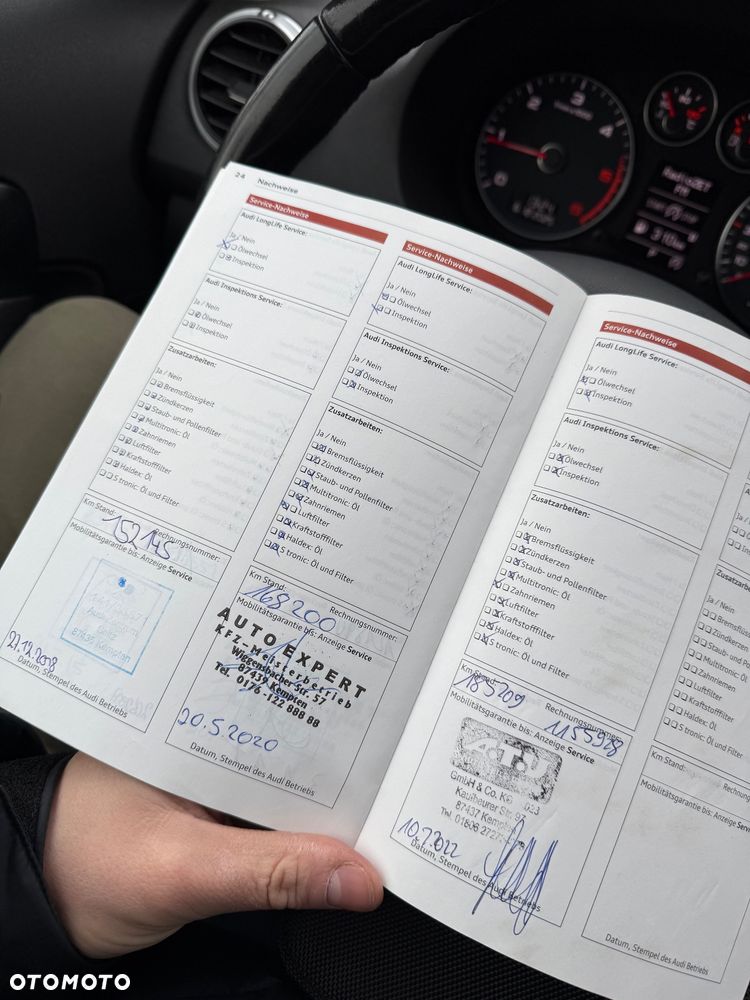 24 Nachweise
Service-Nachweise
Audi LongLife Service:
Ja / Nein
Ölwechsel
Inspektion
Audi Inspektions Service:
Ja / Nein
Ölwechsel
Inspektion
Zusatzarbeiten:
Ja / Nein
Bremsflüssigkeit
Zündkerzen
Staub- und Pollenfilter
Multitronic: Öl
Zahnriemen
Luftfilter
Kraftstofffilter
Haldex: Öl
S tronic: Öl und Filter
Km Stand: Rechnungsnummer:
152145
Mobilitätsgarantie bis: Anzeige Service
87437 Kempten
Datum, Stempel des Audi Betriebs
Service-Nachweise
Audi LongLife Service:
Ja / Nein
Ölwechsel
Inspektion
Audi Inspektions Service:
Ja / Nein
Ölwechsel
Inspektion
Zusatzarbeiten:
Ja / Nein
Bremsflüssigkeit
Zündkerzen
Staub- und Pollenfilter
Multitronic: Öl
Zahnriemen
Luftfilter
Kraftstofffilter
Haldex: Öl
S tronic: Öl und Filter
Km Stand: Rechnungsnummer:
168200
Mobilitätsgarantie bis: Anzeige Service
AUTO EXPERT
KFZ-Meisterbetrieb
Wiggensbacher Str. 57
87439 Kempten
Tel. 0176-122 888 88
20.5.2020
Datum, Stempel des Audi Betriebs
Service-Nachweise
Audi LongLife Service:
Ja / Nein
Ölwechsel
Inspektion
Audi Inspektions Service:
Ja / Nein
Ölwechsel
Inspektion
Zusatzarbeiten:
Ja / Nein
Bremsflüssigkeit
Zündkerzen
Staub- und Pollenfilter
Multitronic: Öl
Zahnriemen
Luftfilter
Kraftstofffilter
Haldex: Öl
S tronic: Öl und Filter
Km Stand: Rechnungsnummer:
185209 1155928
Mobilitätsgarantie bis: Anzeige Service
ATU
GmbH & Co. KG
Kaufbeurer Str. 97
87437 Kempten
10.7.2022
Datum, Stempel des Audi Betriebs
Ja / Nein
Bremsflüssigkeit
Zündkerzen
Staub- und
Multitronic: Öl
Zahnriemen
Luftfilter
Kraftstofffilter
Haldex: Öl
S tronic: Öl und Filter
Km Stand:
Mobilitätsgarantie bis: Anzeige
Datum, Stempel des Audi Betriebs
OTOMOTO